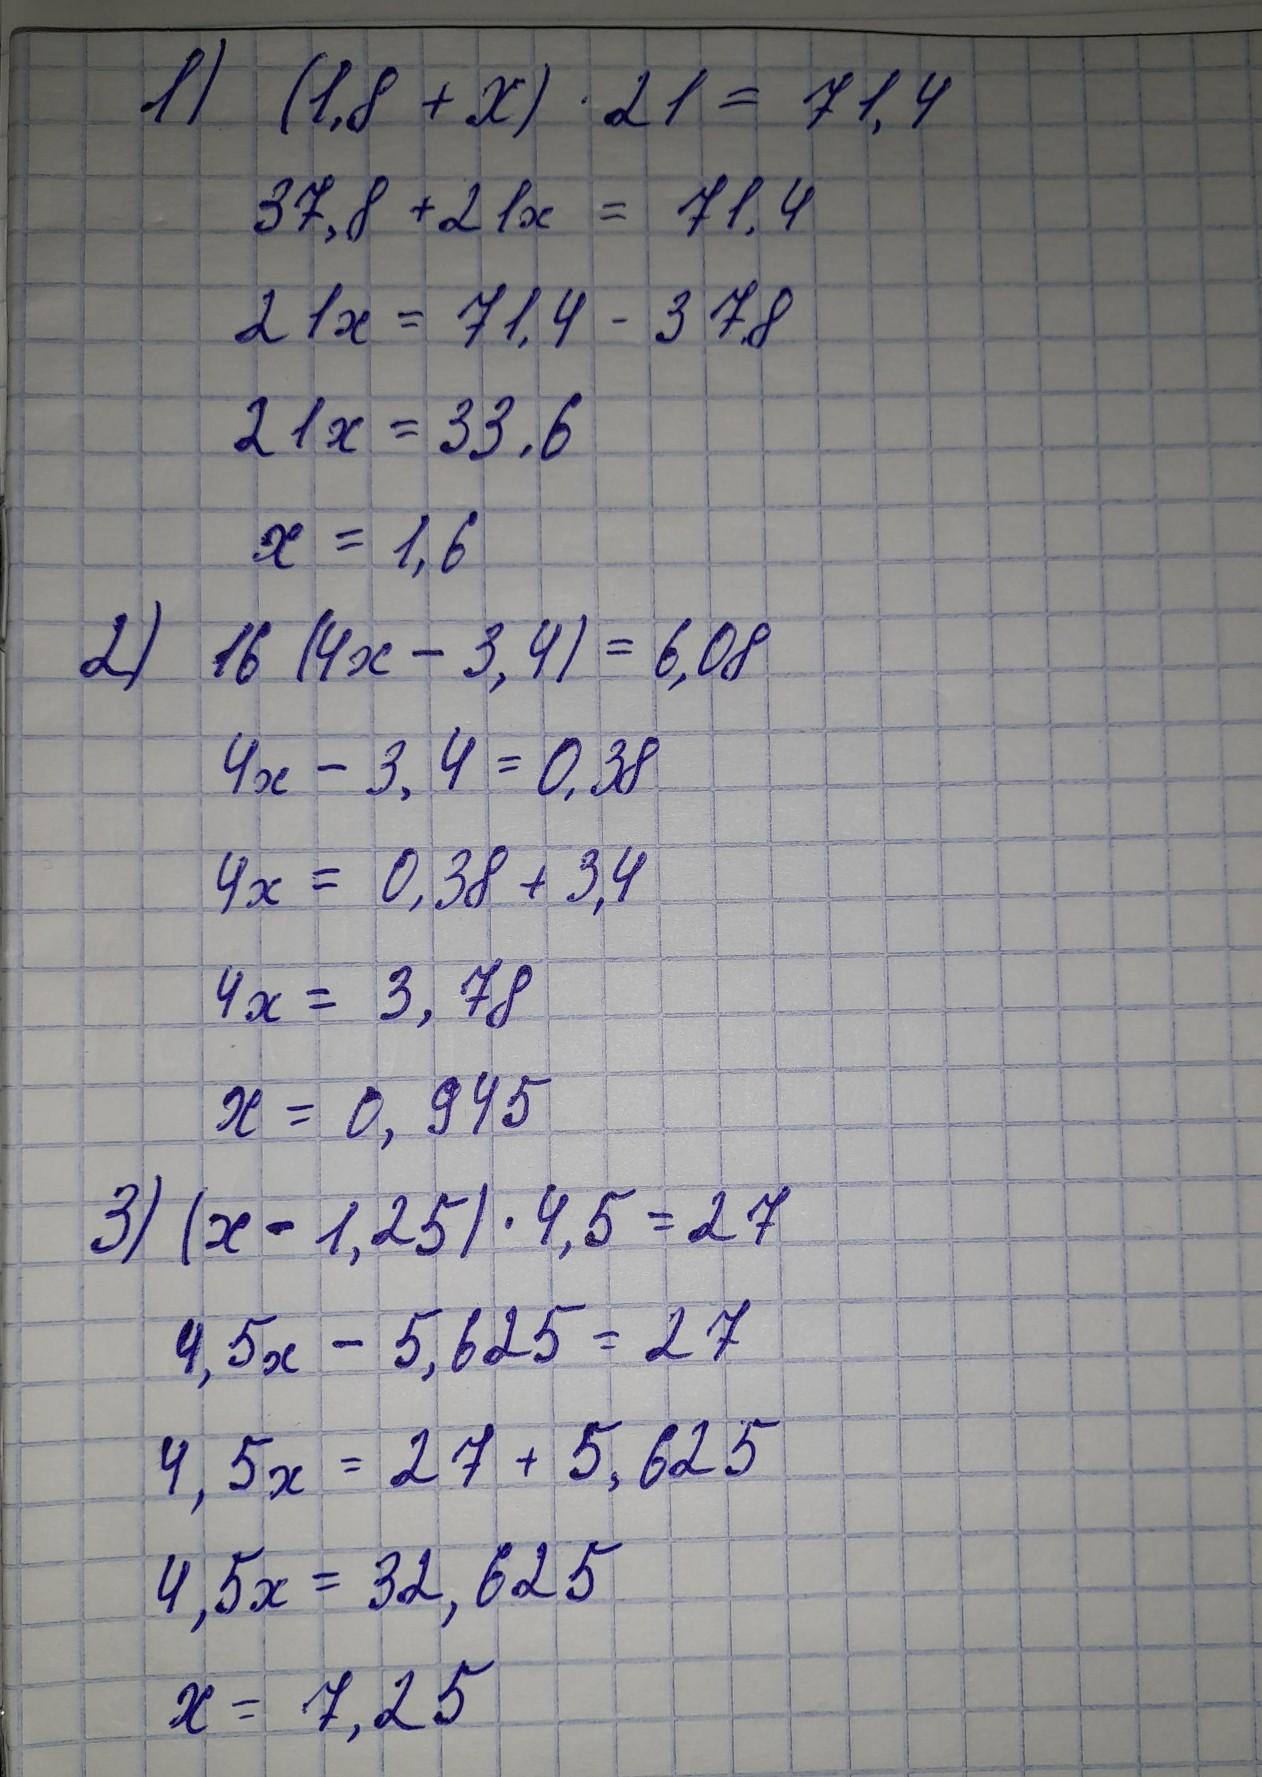 1) (1,8 + x) · 21 = 71,4
37,8 + 21x = 71,4
21x = 71,4 - 37,8
21x = 33,6
x = 1,6
2) 16 (4x - 3,4) = 6,08
4x - 3,4 = 0,38
4x = 0,38 + 3,4
4x = 3,78
x = 0,945
3) (x - 1,25) · 4,5 = 27
4,5x - 5,625 = 27
4,5x = 27 + 5,625
4,5x = 32,625
x = 7,25